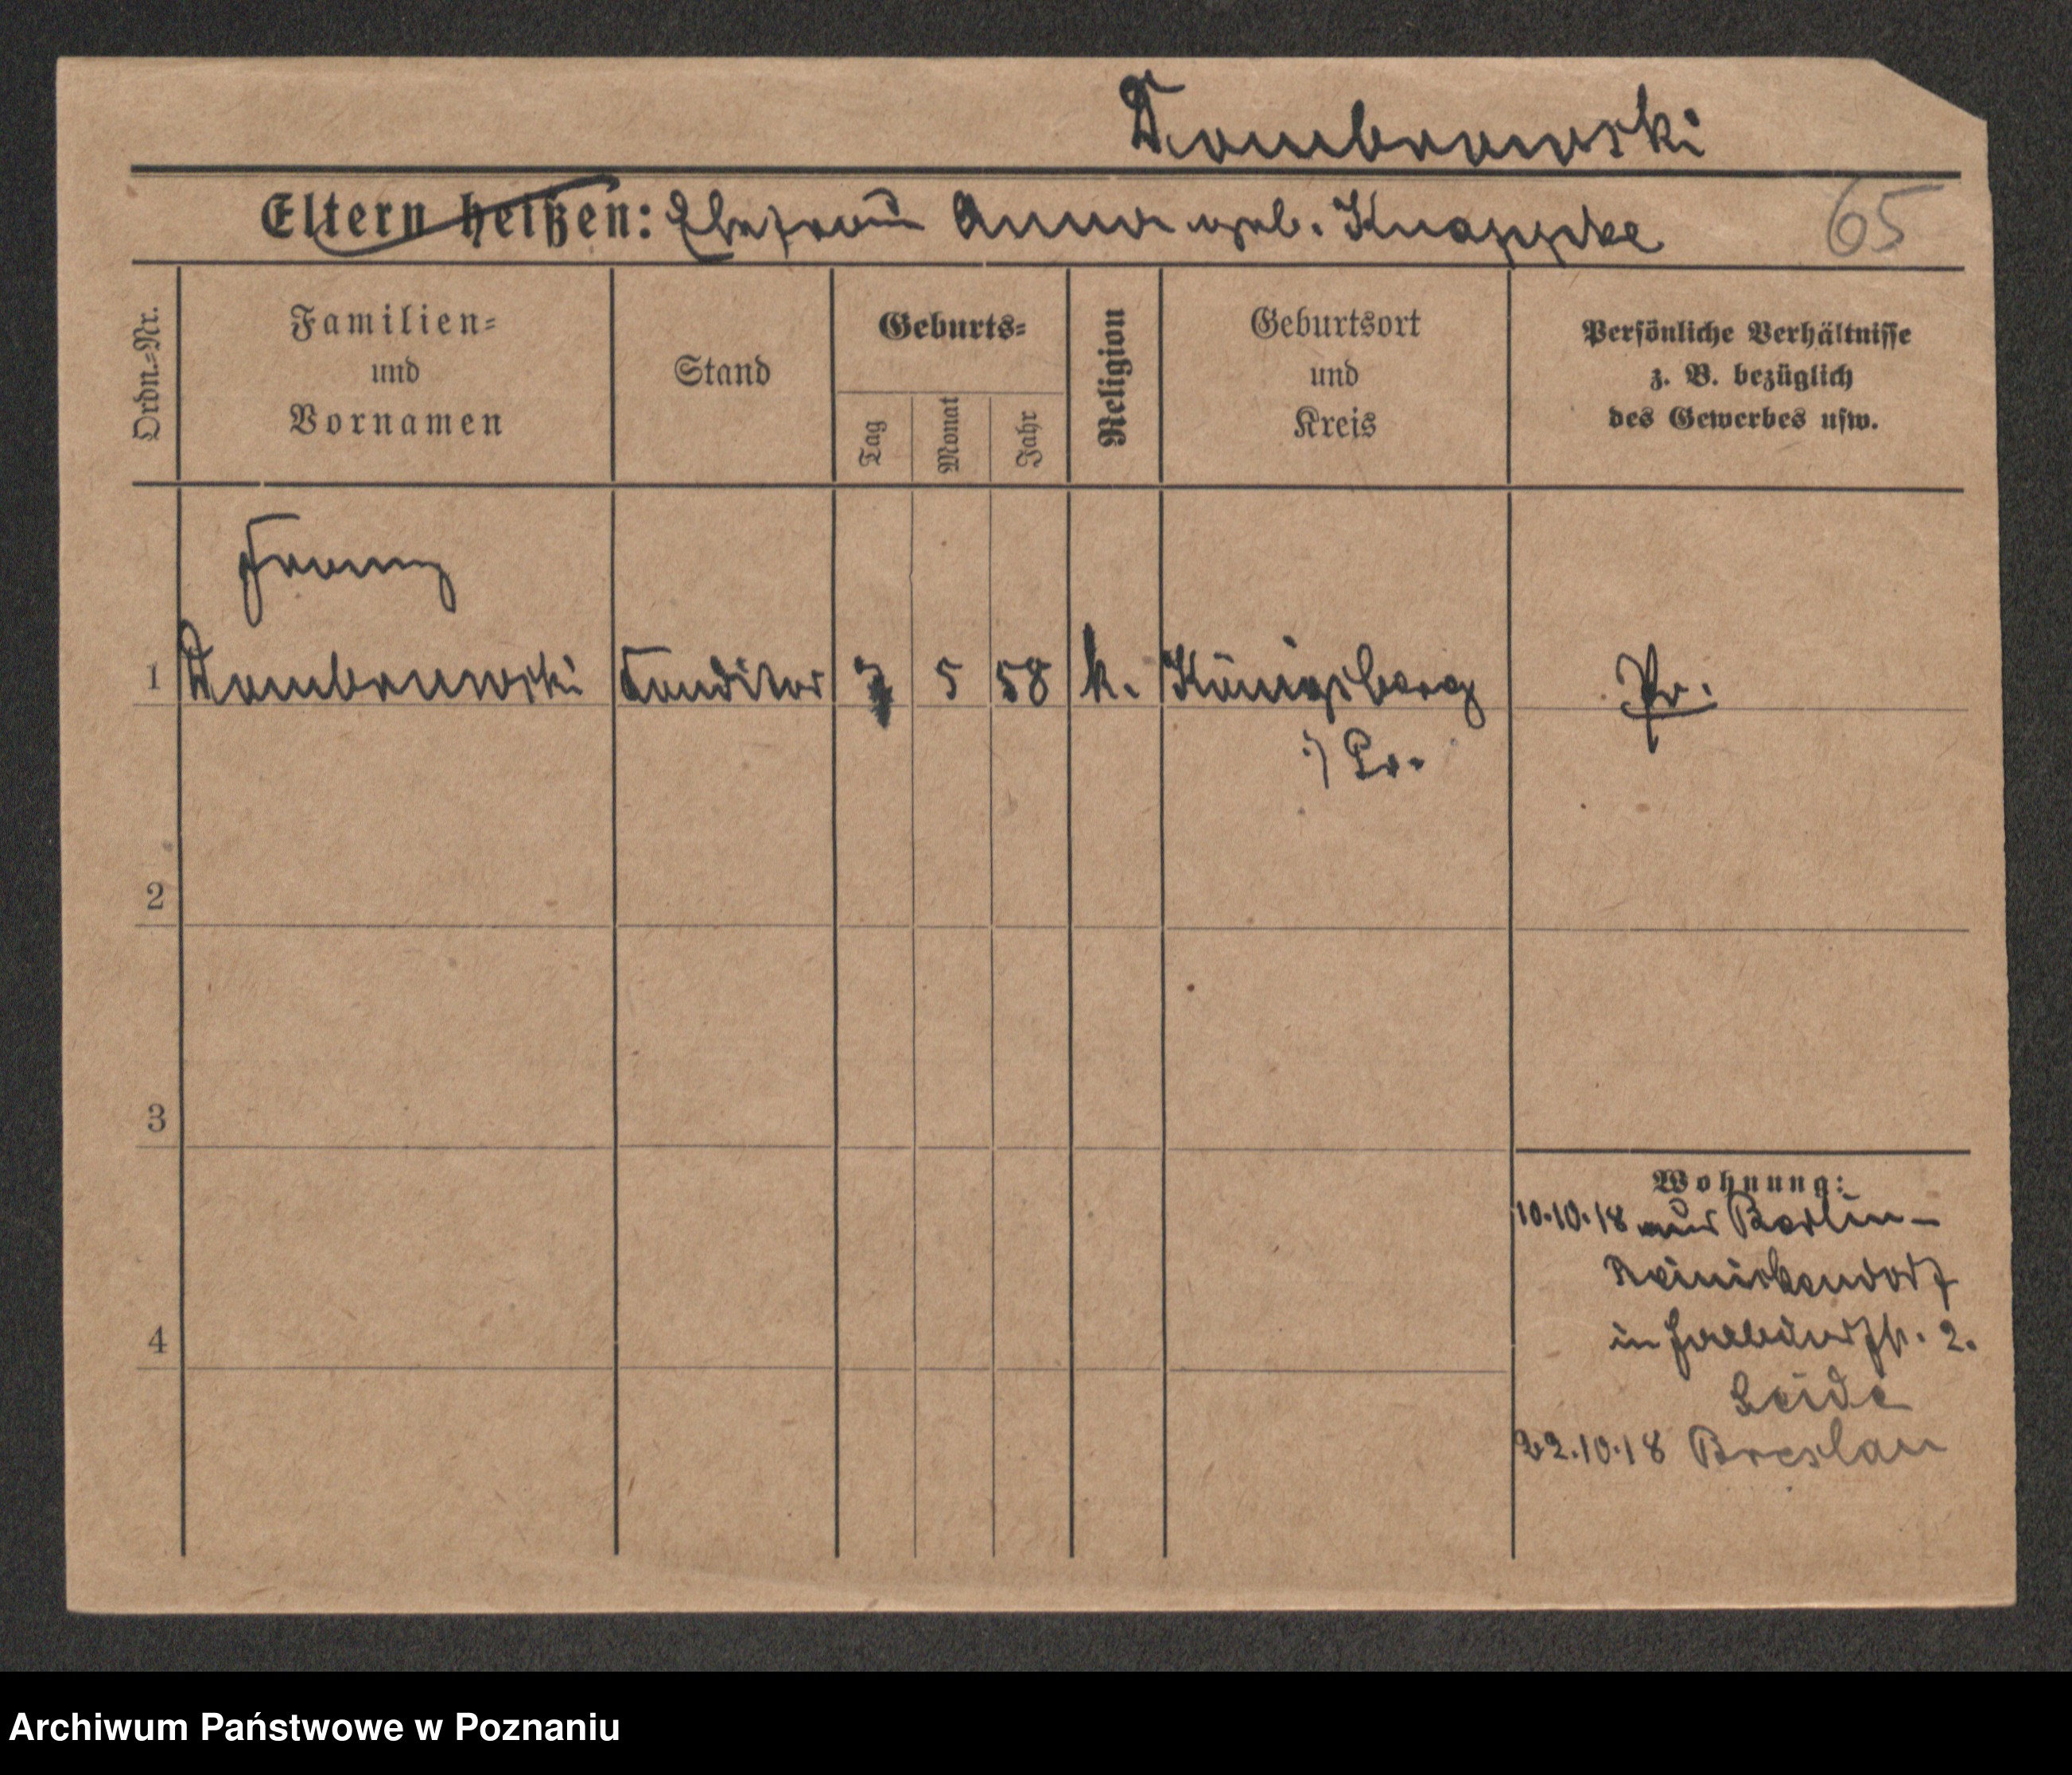 Dombrowski
Eltern heißen: Ehefrau Anna geb. Knappke
65
Ordn.-Nr.
Familien-
und
Vornamen
Stand
Geburts-
Tag
Monat
Jahr
Religion
Geburtsort
und
Kreis
Persönliche Verhältnisse
z. B. bezüglich
des Gewerbes usw.
Franz
1 Dombrowski Conditor 7 5 58 k. Königsberg Pr.
i/ Pr.
2
3
4
Wohnung:
10.10.18 aus Berlin-
Reinickendorf
in 2.
22.10.18 Breslau
Archiwum Państwowe w Poznaniu